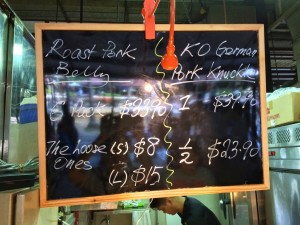 Roast Pork
Belly
$ Pack $23.90
The loose (S) $8
Ones
(L) $15
KO German
Pork Knuckle
1 $39.90
1/2 $23.90